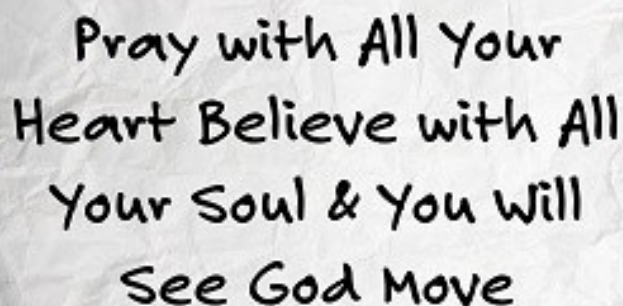 Pray with All Your
Heart Believe with All
Your Soul & You Will
See God Move